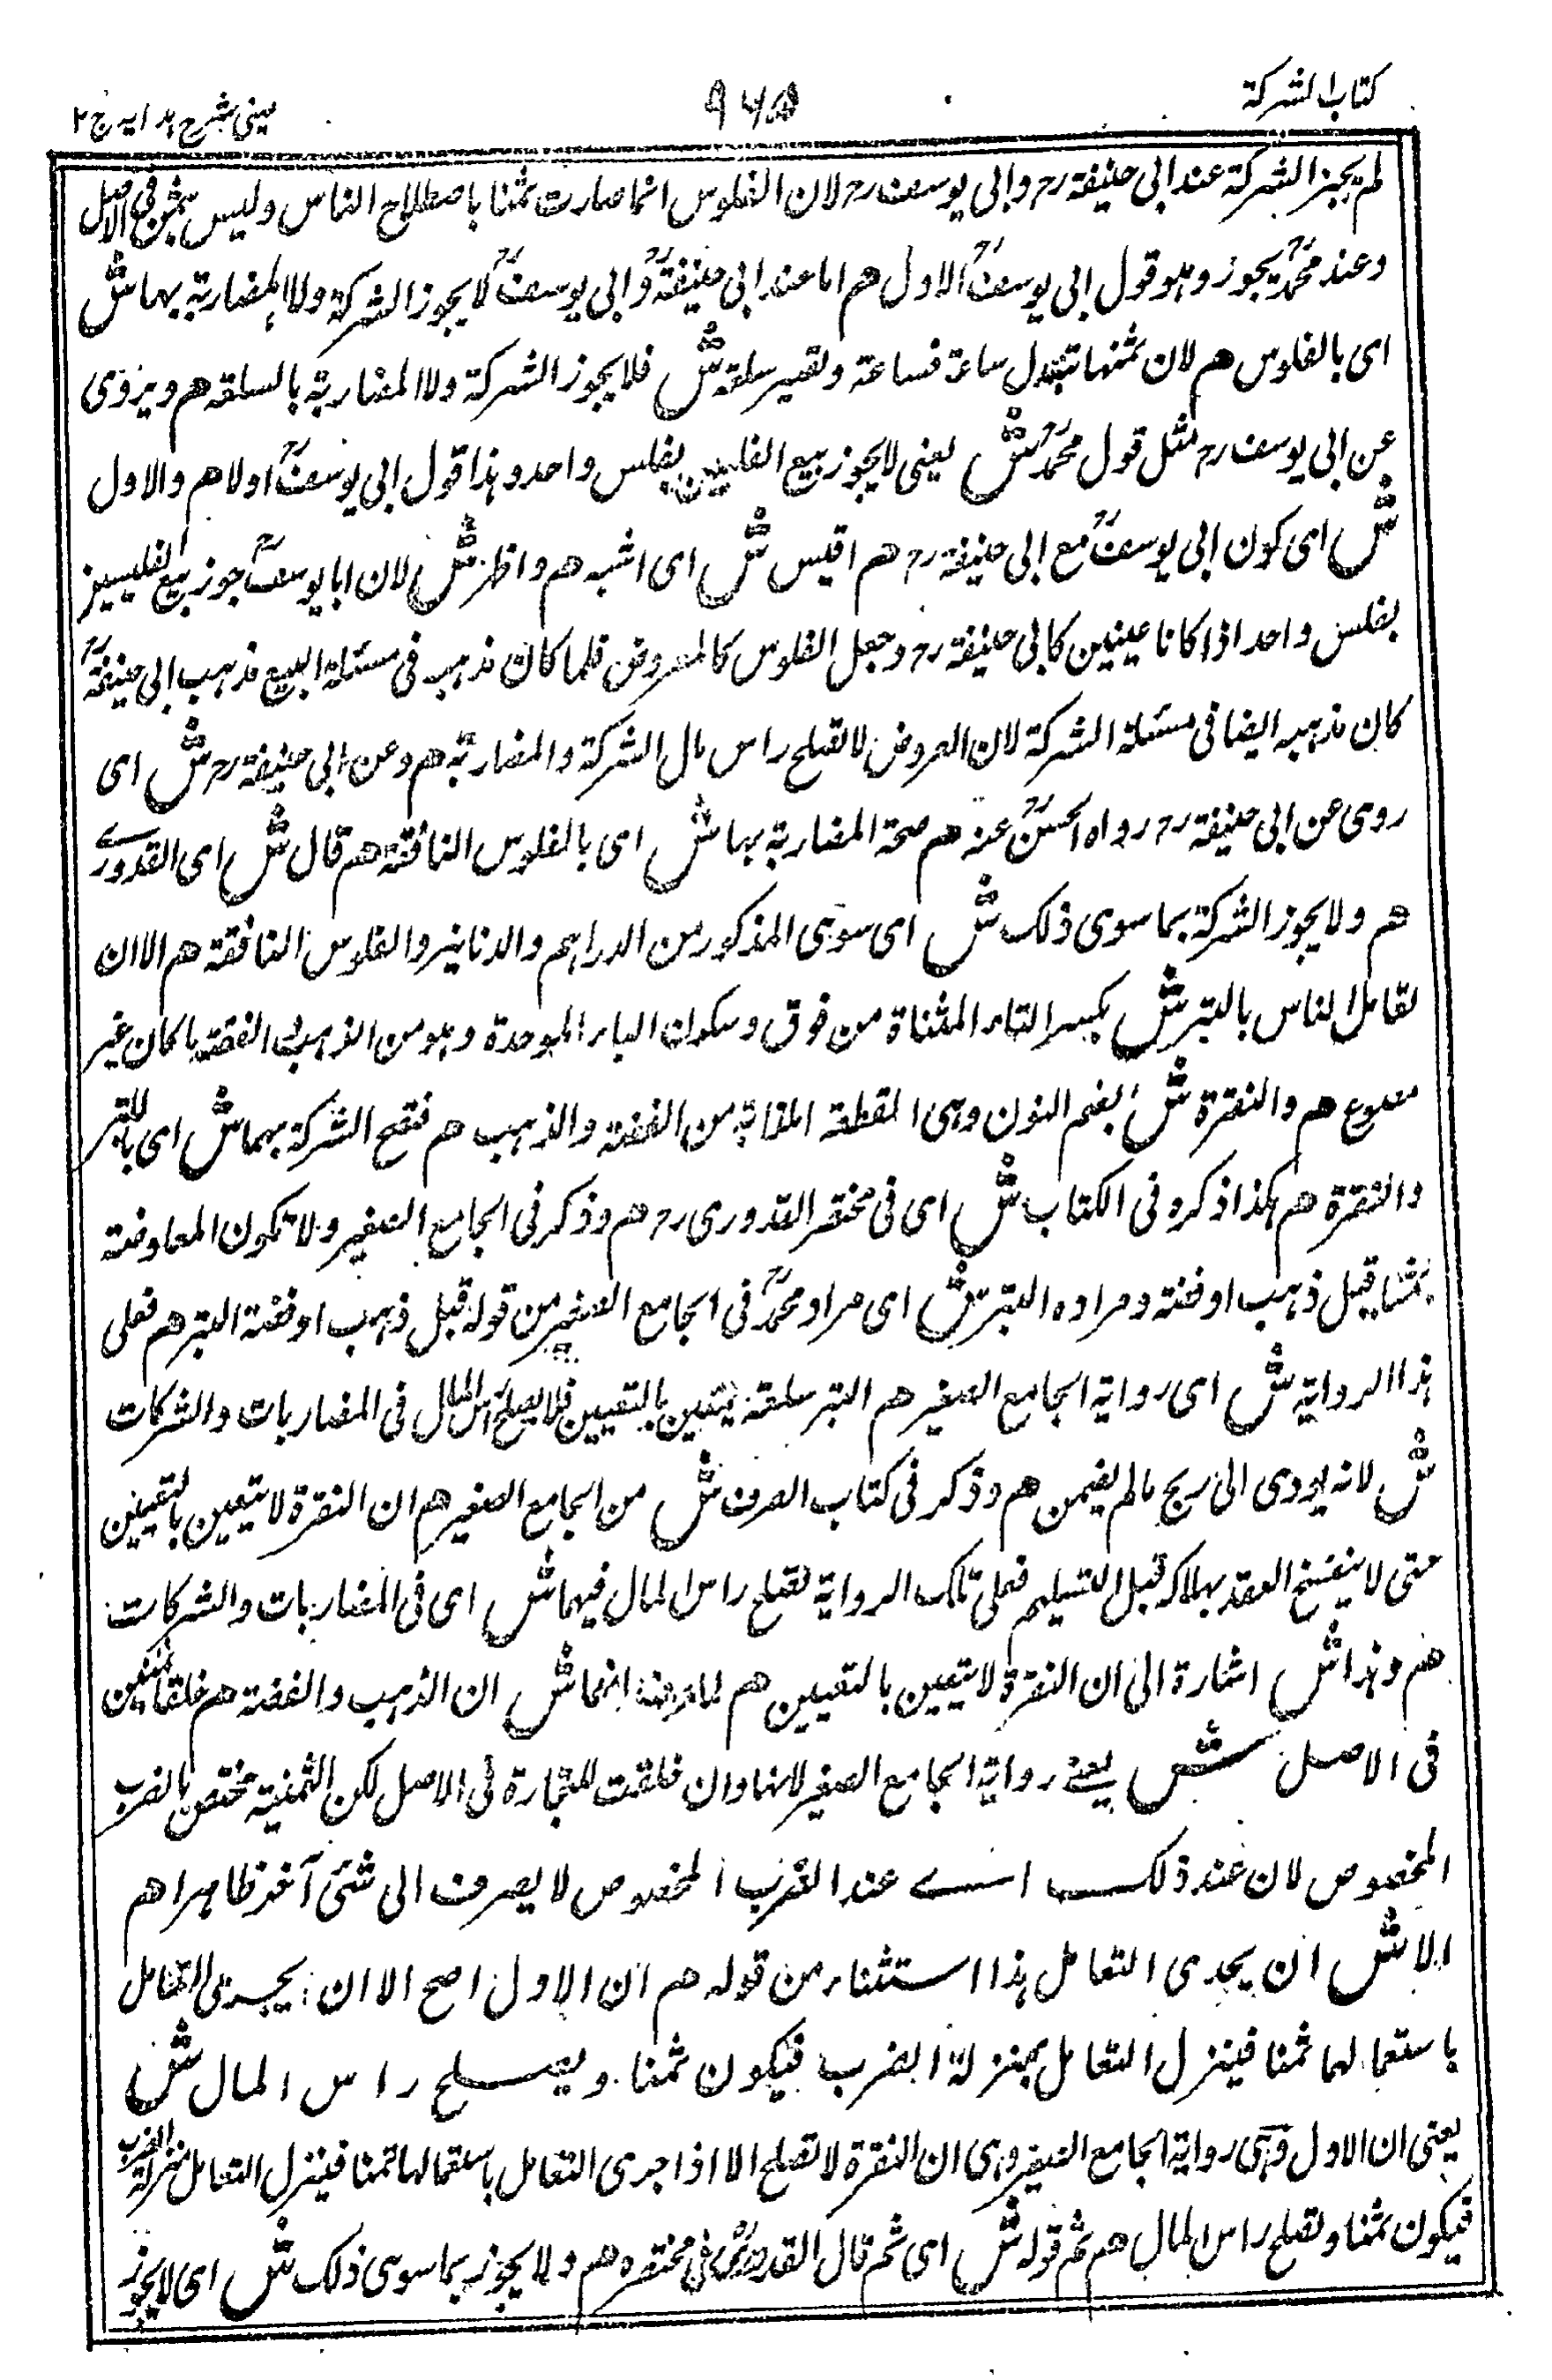 كتاب الشركة
٩٦٥
عینی شرح ہدایہ ج ٢
لم يجز الشركة عند ابی حنیفة رح وابی یوسف رح لان الفلوس انما صارت ثمنا باصطلاح الناس ولیس بثمن فی الاصل
وعند محمد رح یجوز وہو قول ابی یوسف رح الاول هم اما عند ابی حنیفة رح وابی یوسف رح لا یجوز الشركة ولا المضاربة بہا ش
ای بالفلوس هم لان ثمنہا تتبدل ساعة فساعة وتصیر سلعة ش فلا یجوز الشركة ولا المضاربة بالسلعة هم ویروی
عن ابی یوسف رح مثل قول محمد رح ش یعنی لا یجوز بیع الفلسین بفلس واحد وہذا قول ابی یوسف رح اولا هم والاول
ش ای كون ابی یوسف رح مع ابی حنیفة رح هم اقیس ش ای اشبہ هم واظہر ش لان ابا یوسف رح جوز بیع الفلسین
بفلس واحد اذا كانا عینین كابی حنیفة رح وجعل الفلوس كالعروض فلما كان مذہبہ فی مسئلة البیع مذہب ابی حنیفة رح
كان مذہبہ ایضا فی مسئلة الشركة لان العروض لا تصلح راس مال الشركة والمضاربة هم وعن ابی حنیفة رح ش ای
روی عن ابی حنیفة رح رواہ الحسن رح عنہ هم صحة المضاربة بہا ش ای بالفلوس النافقة هم قال ش ای القدوری
هم ولا یجوز الشركة بما سوی ذلك ش ای سوی المذكور من الدراہم والدنانیر والفلوس النافقة هم الا ان
تعامل الناس بالتبر ش بكسر التاء المثناة من فوق وسكون الباء الموحدة وہو من الذہب والفضة ما كان غیر
مصوغ هم والنقرة ش بضم النون وہی القطعة المذابة من الفضة والذہب هم فتصح الشركة بہما ش ای بالتبر
والنقرة هم ہكذا ذكرہ فی الكتاب ش ای فی مختصر القدوری رح هم وذكر فی الجامع الصغیر ولا تكون المفاوضة
بمثاقیل ذہب او فضة ومرادہ التبر ش ای مراد محمد رح فی الجامع الصغیر من قولہ قبل ذہب او فضة التبر هم فعلی
ہذا الروایة ش ای روایة الجامع الصغیر هم التبر سلعة یتعین بالتعیین فلا یصلح راس المال فی المضاربات والشركات
ش لانہ یودی الی ربح مالم یضمن هم وذكر فی كتاب الصرف ش من الجامع الصغیر هم ان النقرة لا تتعین بالتعیین
حتی لا ینفسخ العقد بہلاكہ قبل التسلیم فعلی تلك الروایة تصلح راس المال فیہما ش ای فی المضاربات والشركات
هم وہذا ش اشارة الی ان النقرة لا یتعین بالتعیین هم لما عرف انہما ش ان الذہب والفضة هم خلقا ثمنین
فی الاصل ش یعنے روایة الجامع الصغیر لانہا وان خلقت للتجارة فی الاصل لكن الثمنیة مختص بالضرب
المخصوص لان عند ذلك اے عند الضرب المخصوص لا یصرف الی شئ آخر ظاہرا هم
الا ش ان یجری التعامل ہذا استثناء من قولہ هم ان الاول اصح الا ان یجری التعامل
باستعمالہما ثمنا فینزل التعامل بمنزلة الضرب فیكون ثمنا ویصلح راس المال ش
یعنی ان الاول وہی روایة الجامع الصغیر وہی ان النقرة لا تصلح الا اذا جری التعامل باستعمالہا ثمنا فینزل التعامل منزلة الضرب
فیكون ثمنا وتصلح راس المال هم ثم قولہ ش ای ثم قال القدوری فی مختصرہ هم ولا یجوز بما سوی ذلك ش ای لا یجوز